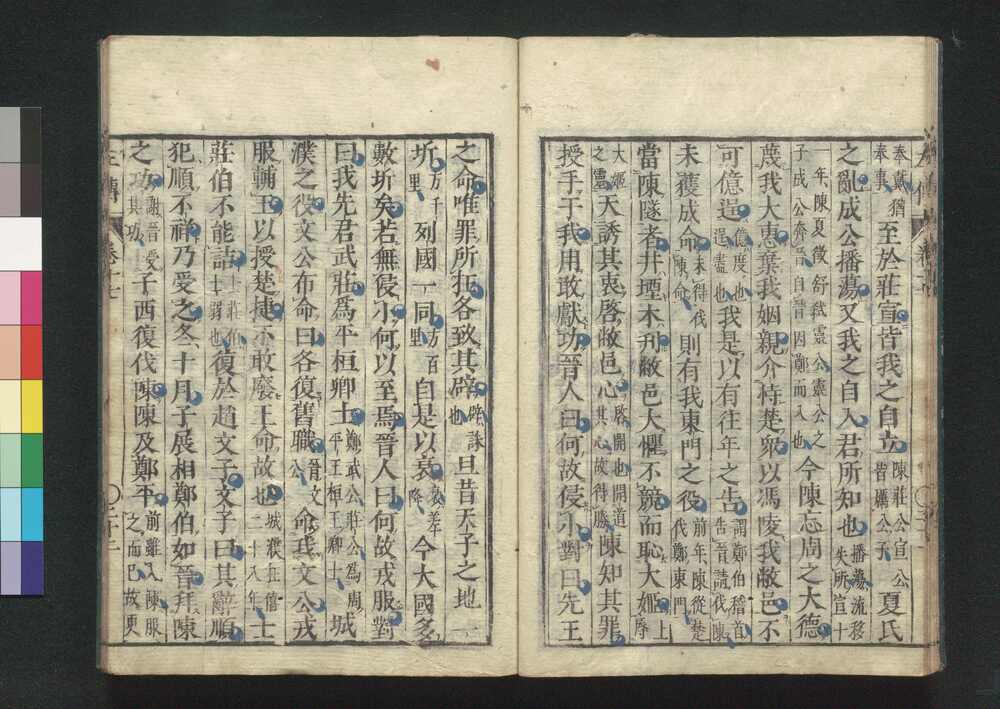 奉戴猶奉事至於莊宣皆我之自立陳莊公宣公皆厲公子夏氏
之亂成公播蕩又我之自入君所知也播蕩流移失所宣十
一年陳夏徵舒弒靈公靈公之子成公奔晉自晉因鄭而入也今陳忘周之大德
蔑我大惠棄我姻親介恃楚眾以馮陵我敝邑不
可億逞億度也逞盡也我是以有往年之告謂鄭伯稽首告晉請伐陳
未獲成命未得伐陳命則有我東門之役前年陳從楚伐鄭東門
當陳隧者井堙木刊敝邑大懼不競而恥大姬上辱
大姬之靈天誘其衷啓敝邑心啓開也開道其心故得勝陳知其罪
授手于我用敢獻功晉人曰何故侵小對曰先王
之命唯罪所在各致其辟辟誅也且昔天子之地一
圻方千里列國一同方百里自是以衰衰差降今大國多
數圻矣若無侵小何以至焉晉人曰何故戎服對
曰我先君武莊爲平桓卿士鄭武公莊公為周平王桓王卿士城
濮之役文公布命曰各復舊職晉文公命我文公戎
服輔王以授楚捷不敢廢王命故也城濮在僖二十八年士
莊伯不能詰士莊伯士弱也復於趙文子文子曰其辭順
犯順不祥乃受之冬十月子展相鄭伯如晉拜陳
之功謝晉受其功子西復伐陳陳及鄭平前雖入陳服之而已故更